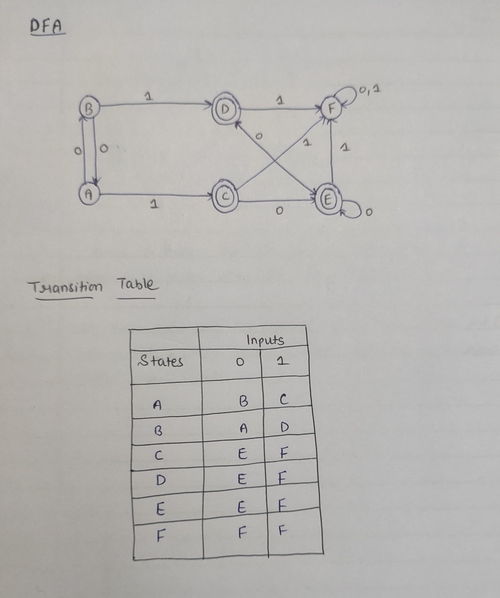 DFA
B 1 D 1 F 0,1
0 0 0 1 1
A 1 C 0 E 0
Transition Table
Inputs
States 0 1
A B C
B A D
C E F
D E F
E E F
F F F